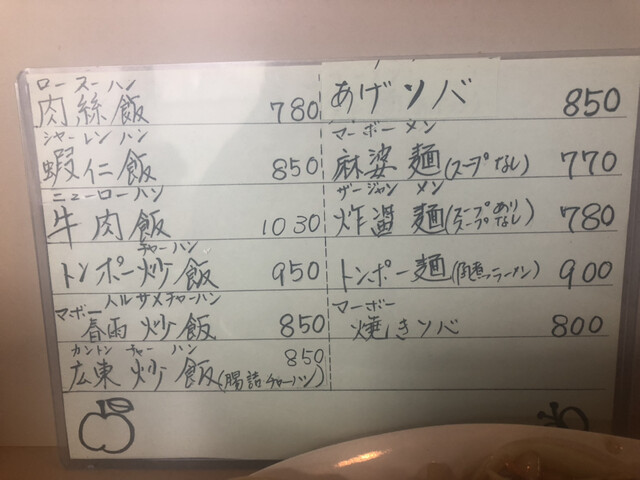 ロースーハン
肉絲飯 780
シャーレンハン
蝦仁飯 850
ニューローハン
牛肉飯 1030
チャーハン
トンポー炒飯 950
マーボーハルサメチャーハン
春雨炒飯 850
カントンチャーハン
広東炒飯(腸詰チャーハン) 850
あげソバ 850
マーボーメン
麻婆麺(スープなし) 770
ザージャンメン
炸醤麺(スープあり スープなし) 780
トンポー麺(角煮ラーメン) 900
マーボー
焼きソバ 800